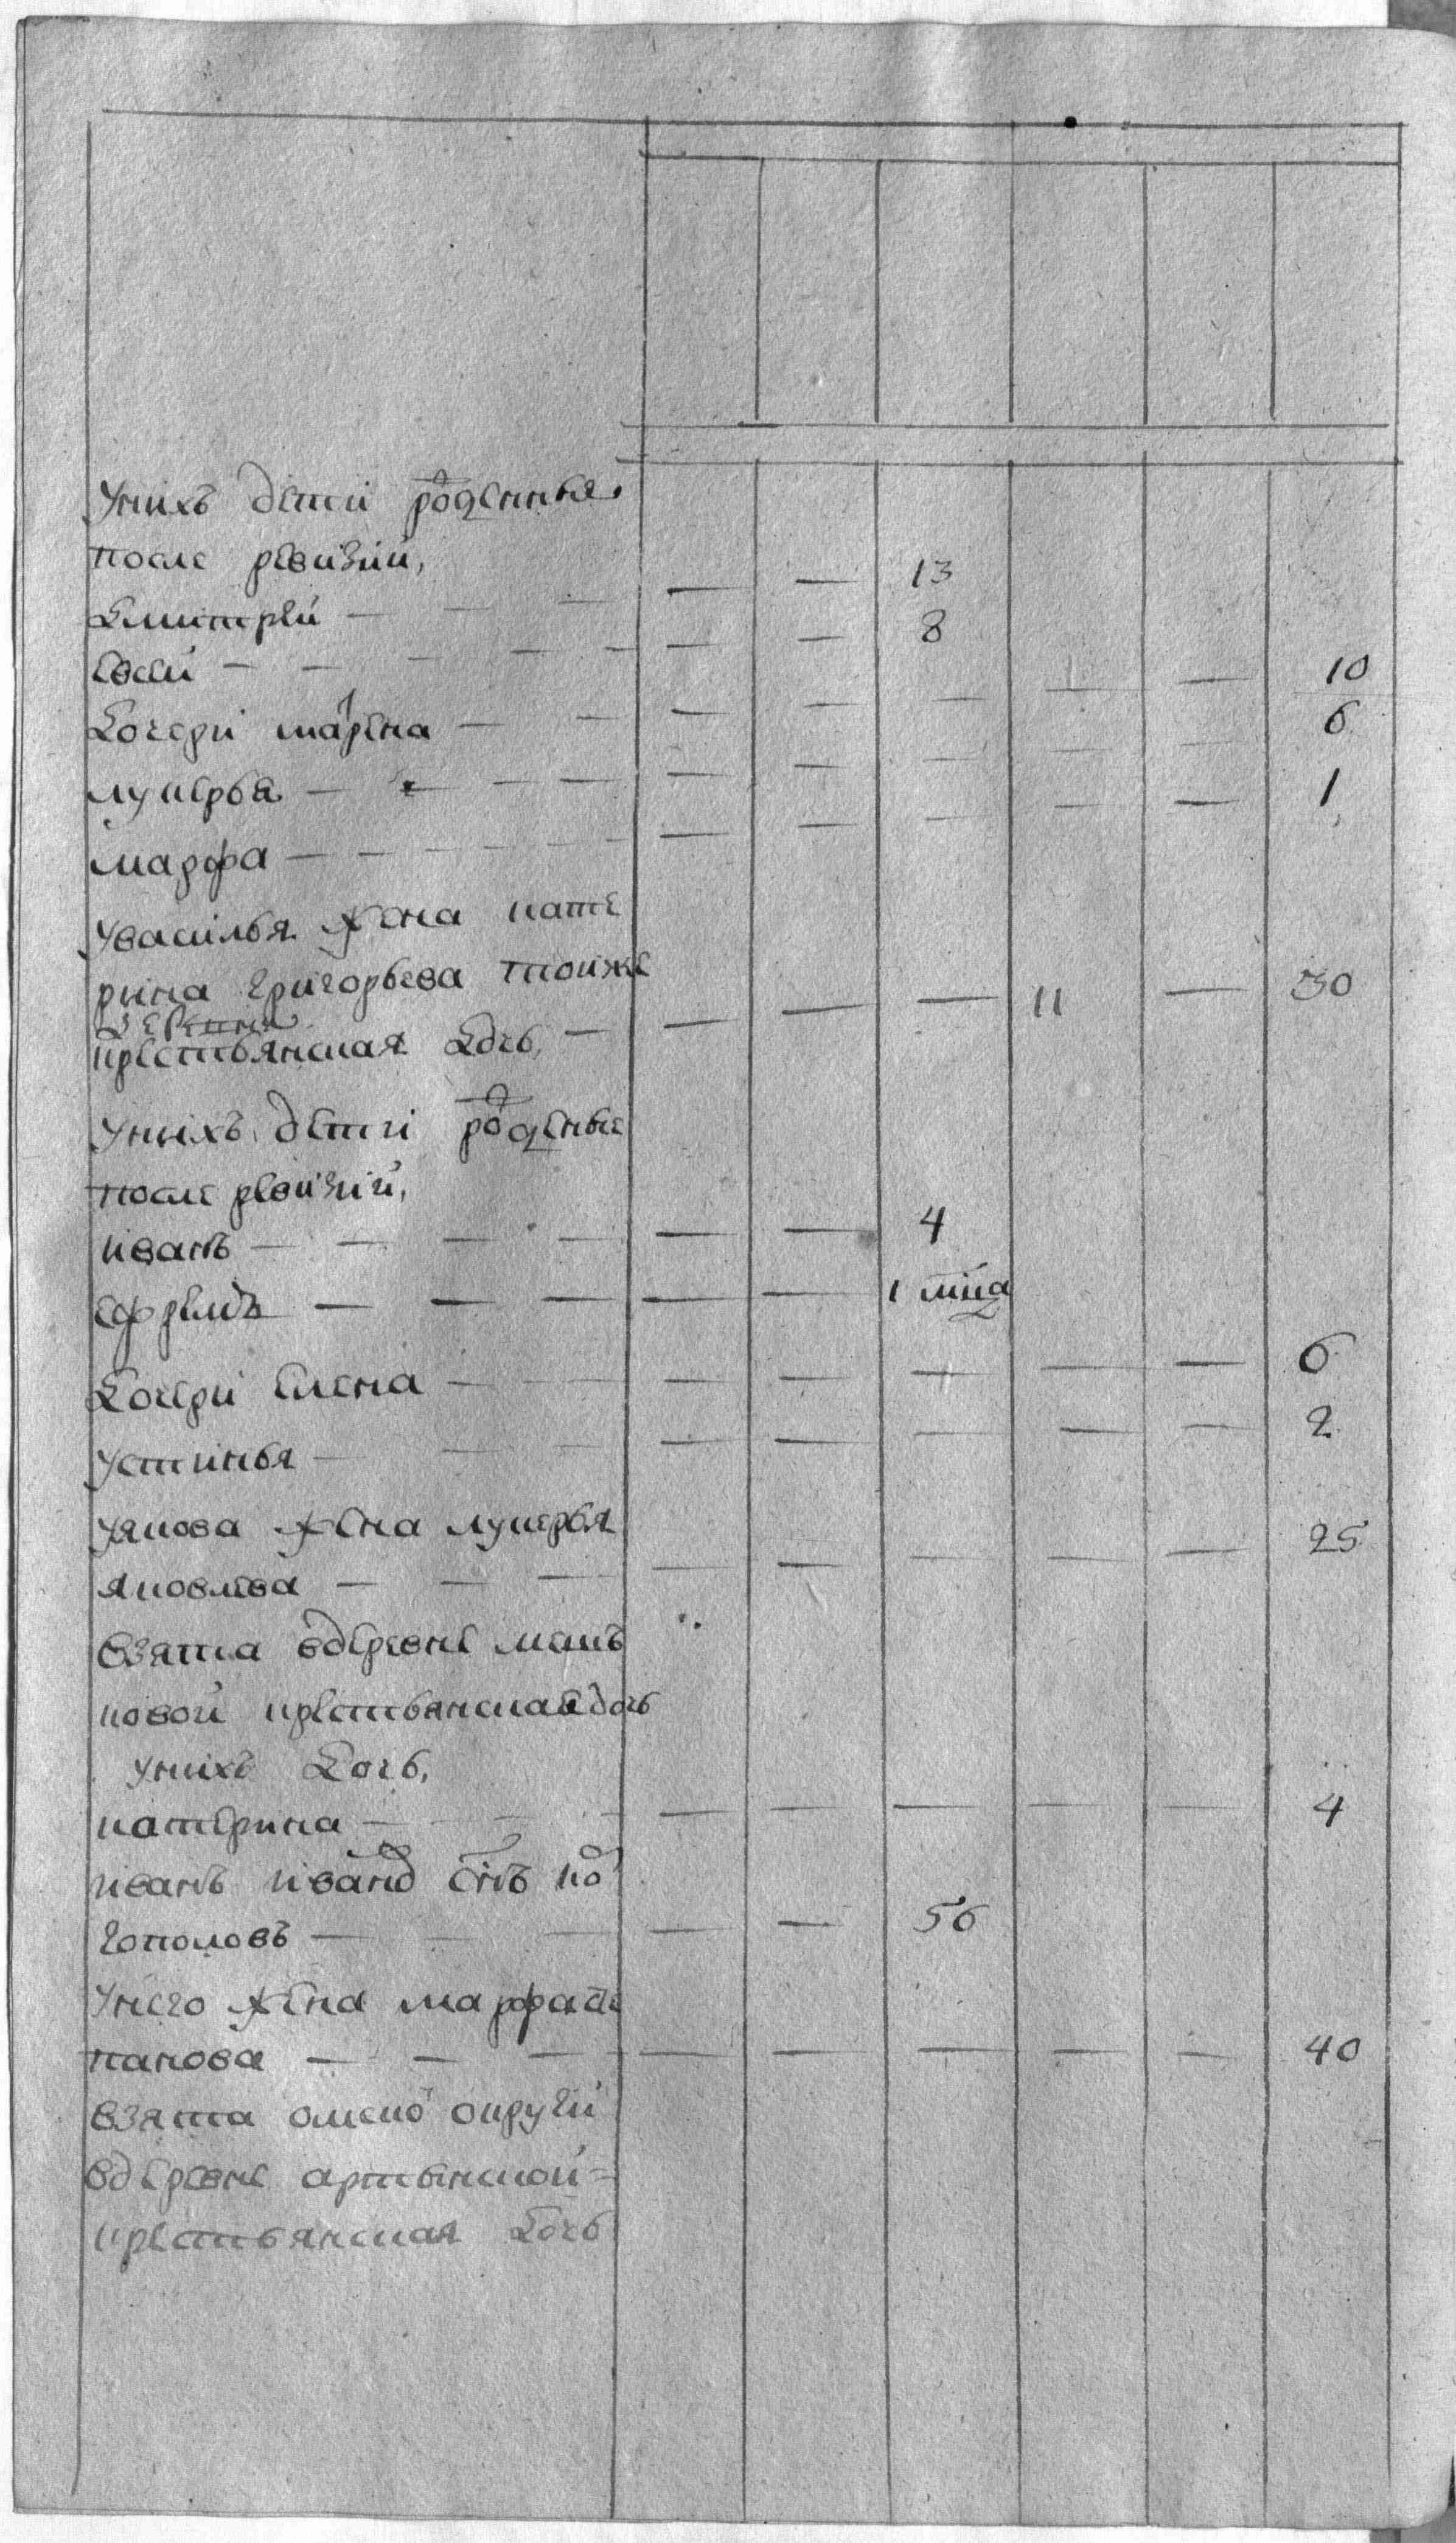 унихъ дѣти рожденныя
после ревизии,
Дмитреи — — — — — 13
Евсеи — — — — — — — 8
Дочери марѳна — — — — — — — 10
лукерья — — — — — — — — — 6
марфа — — — — — — — — — — 1
увасилья жена кате
рина григорьева тоиже
деревни
крестьянская дочь, — — — — 11 — 30
унихъ дети рожденые
после ревизии,
иванъ — — — — — — 4
ефремъ — — — — — 1 мца
Дочери елена — — — — — — — — 6
устинья — — — — — — — — 2
уякова жена лукерья
яковлева — — — — — — — — 25
взята вдеревне
новой крестьянская дочь
унихъ дочь,
катерина — — — — — — — 4
иванъ ивановъ снъ ко
гополовъ — — — — — 56
унего жена марфа сте
панова — — — — — — — — 40
взята омской округи
вдеревне артынской =
крестьянская дочь